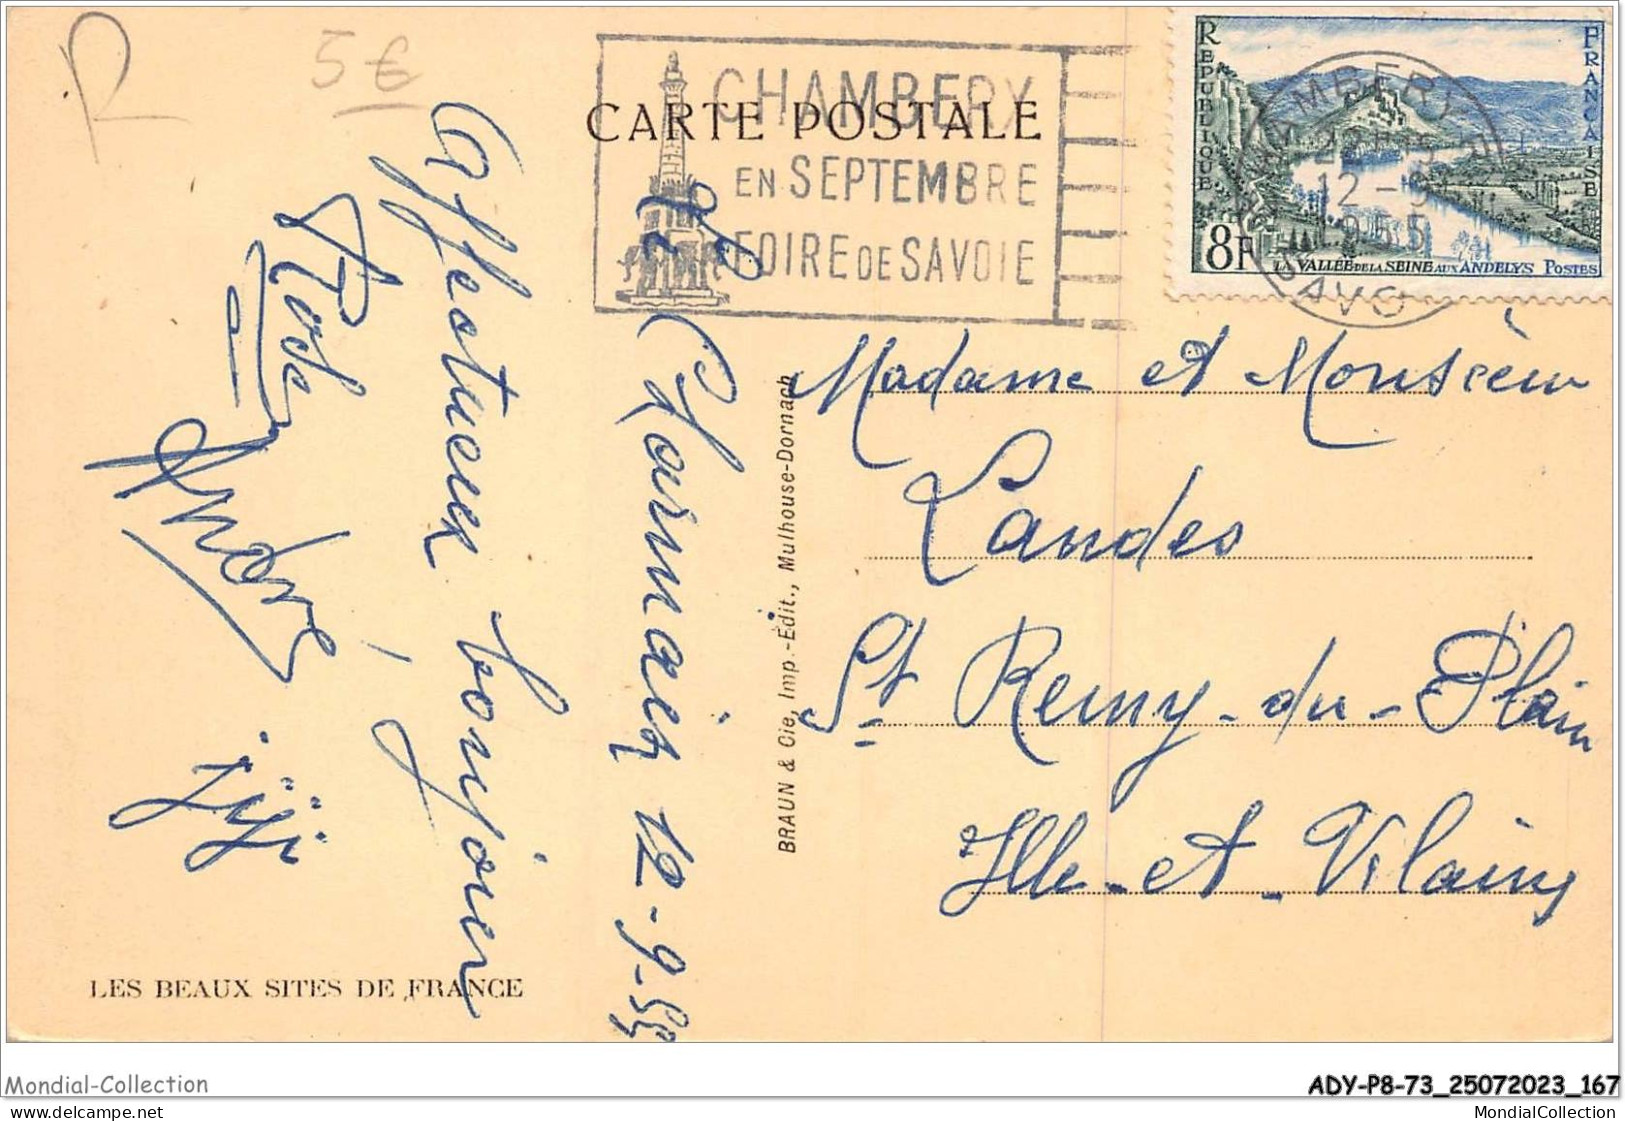 R
5€
CHAMBERY
EN SEPTEMBRE
FOIRE DE SAVOIE
CARTE POSTALE
REPUBLIQUE FRANÇAISE
8F
LA VALLÉE DE LA SEINE AUX ANDELYS POSTES
12-9
1955
Le Charmaix 12-9-55
Affectueux bonjour
André
jiji
Madame et Monsieur
Landes
St Remy-du-Plain
Ille-et-Vilaine
BRAUN & Cie, Imp.-Édit., Mulhouse-Dornach
LES BEAUX SITES DE FRANCE
Mondial-Collection
ADY-P8-73_25072023_167
www.delcampe.net
MondialCollection